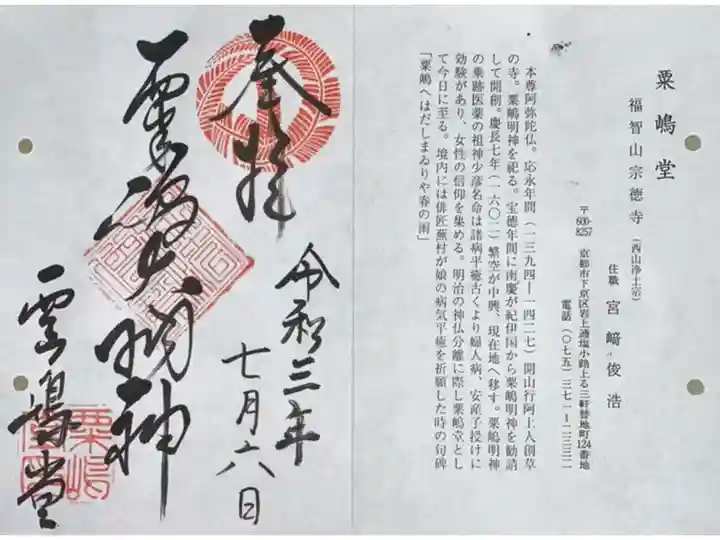 粟嶋堂
福智山宗徳寺（西山浄土宗）
住職 宮﨑俊浩
〒600-8257 京都市下京区岩上通塩小路上る三軒替地町124番地
電話（〇七五）三七一ー二三三二
本尊阿弥陀仏。応永年間（一三九四ー一四二七）開山行阿上人創草
の寺。粟嶋明神を祀る。宝徳年間に南慶が紀伊国から粟嶋明神を勧請
して開創。慶長七年（一六〇二）繁空が中興、現在地へ移す。粟嶋明神
の垂跡医薬の祖神少彦名命は諸病平癒古くより婦人病、安産子授けに
効験があり、女性の信仰を集める。明治の神仏分離に際し粟嶋堂とし
て今日に至る。境内には俳匠蕪村が娘の病気平癒を祈願した時の句碑
「粟嶋へはだしまゐりや春の雨」
奉拝
令和三年
七月六日
粟嶋大明神
粟嶋堂